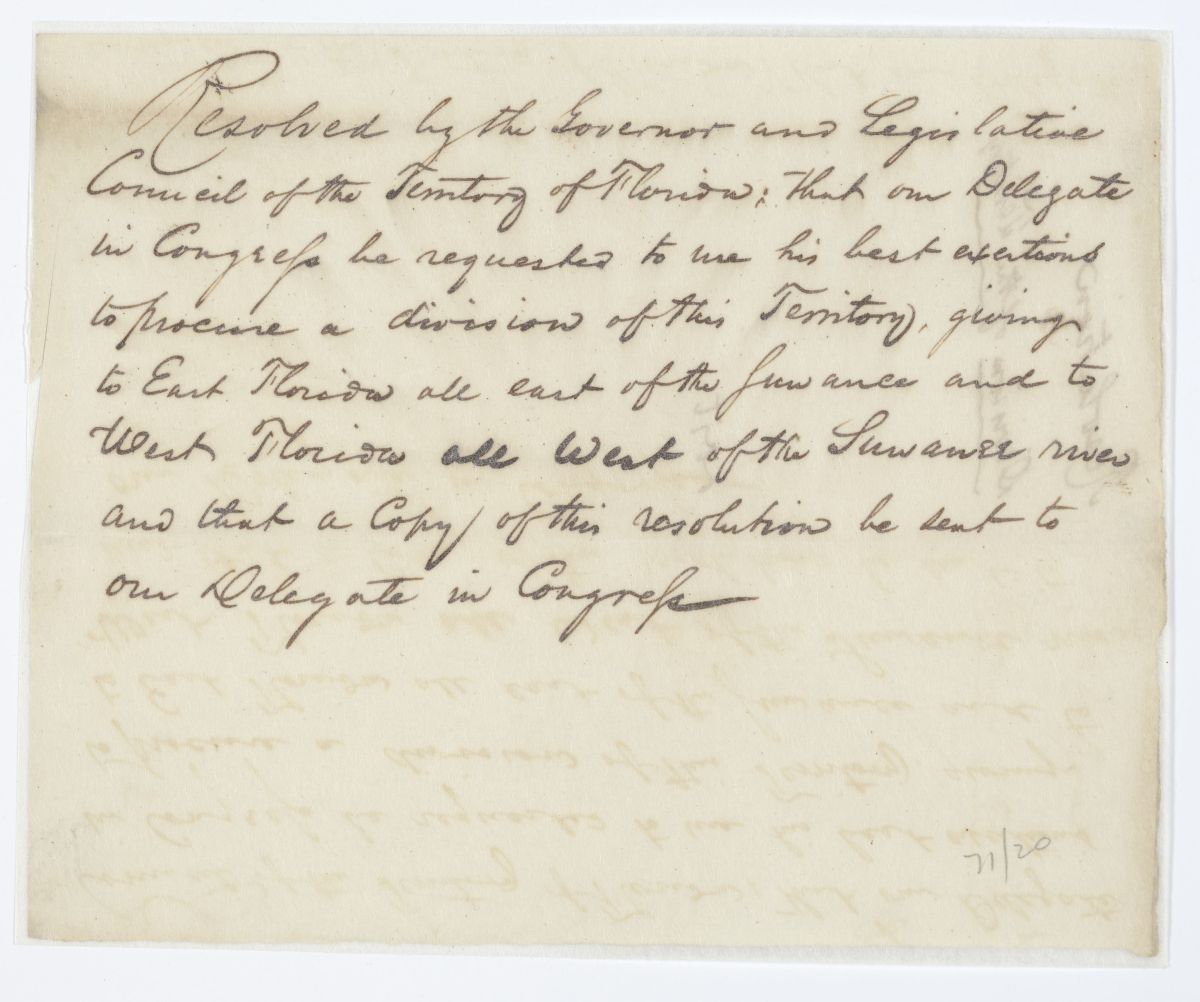 Resolved by the Governor and Legislative
Council of the Territory of Florida; That our Delegate
in Congress be requested to use his best exertions
to procure a division of this Territory, giving
to East Florida all east of the Suwanee and to
West Florida all West of the Suwanee river
and that a Copy of this resolution be sent to
our Delegate in Congress
71/20